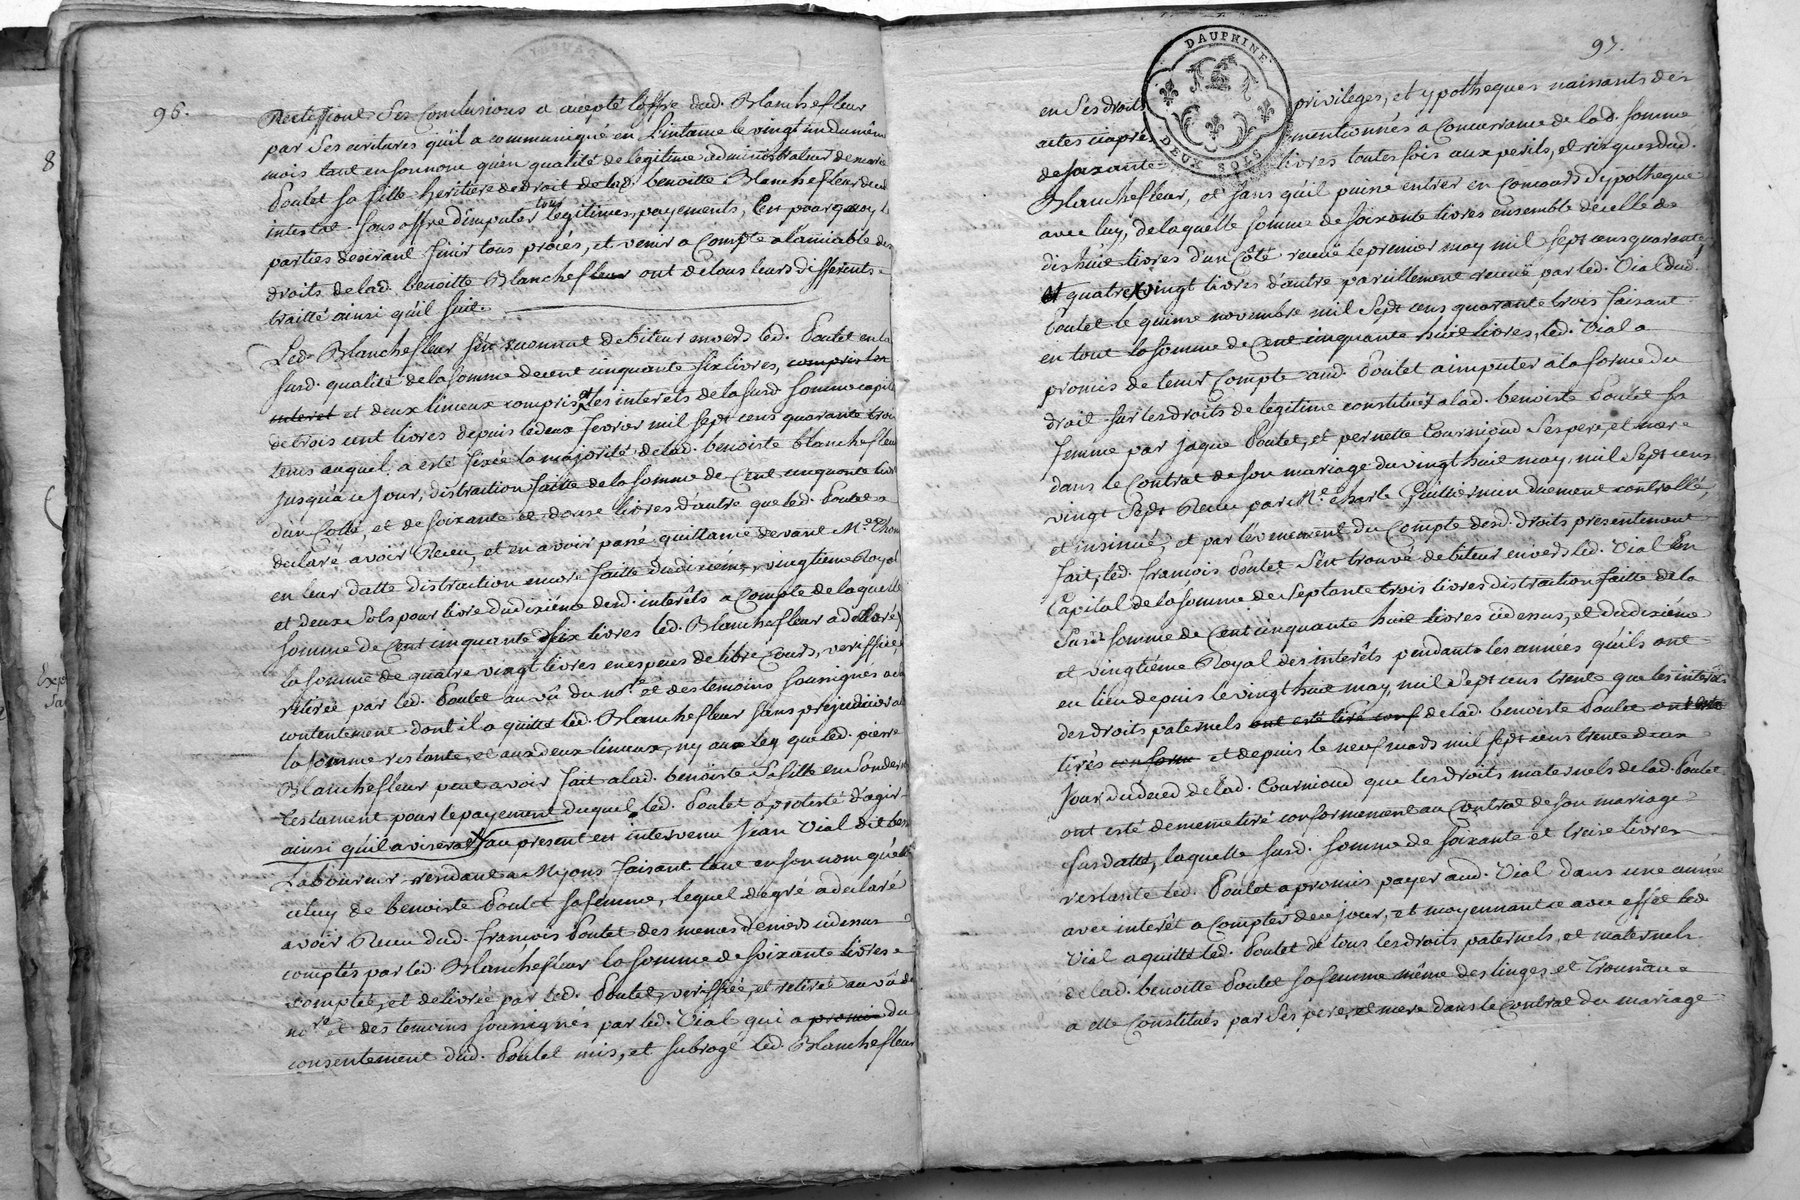 96.
Rectiffiant ses Conclusions a accepté l'offre dud. Blanchefleur
par ses ecritures qu'il a communiqué en l'instance le vingt un du même
mois tant en son nom qu'en qualité de legitime administrateur de marie
Poulet sa fille heritiere de droit de lad. benoitte Blanchefleur
intestat sous offre d'imputer tous legitimes payements, En pourquoy les
parties desirant finir tous procès, et venir a Compte a l'amiable des
droits de lad. benoitte Blanchefleur ont de tous leurs differents
traitté ainsi qu'il suit.
Led. Blanchefleur s'est reconnu debiteur envers led. Poulet en la
susd. qualité de la somme de cent cinquante six livres, compris les
interet et deux linceux compris les interets de la susd. somme capitale
de trois cent livres depuis le deux fevrier mil sept cens quarante trois
tems auquel a esté fixée la majorité de lad. benoitte blanchefleur
jusqu'à ce jour, distraction faitte de la somme de Cent cinquante livres
d'un Cotté, et de soixante et douse livres d'autre que led. Poulet a
declaré avoir Receu, et en avoir passé quittance devant Me Thomé
en leur datte distraction encore faitte du dixiéme, vingtiéme Royal
et deux sols pour livre du dixiéme desd. interêts a Compte de laquelle
somme de Cent cinquante six livres led. Blanchefleur a délivré
la somme de quatre vingt livres en especes de libre Cours, veriffiée
retirée par led. Poulet au vû du nore et des temoins soussignés a
contentement dont il a quitté led. Blanchefleur sans prejudice de
la somme restante, et aux deux linceux, ny aux leg que led. pierre
Blanchefleur peut avoir fait a lad. benoitte sa fille en son dernier
testament pour le payement duquel led. Poulet a protesté d'agir
ainsi qu'il avisera, au present est intervenu Jean Vial dit
Laboureur residant a Myons faisant tant en son nom qu'en
celuy de benoiste Poulet sa femme, lequel de gré a declaré
avoir Receu dud. francois Poulet des memes deniers cidessus
comptés par led. Blanchefleur la somme de soixante livres
comptée, et delivrée par led. Poulet, veriffiée, et retirée au vû de
nore et des temoins soussignés par led. Vial qui a promis du
consentement dud. Poulet mis, et subrogé led. Blanchefleur
97.
DAUPHINE DEUX SOLS
en ses droits privileges, et ypotheques naissants des
actes ciaprès mentionnés a Concurrance de lad. somme
de soixante livres toutes fois aux perils, et risques dud.
Blanchefleur, et sans qu'il puisse entrer en Concours d'ypotheque
avec luy, de laquelle somme de soixante livres ensemble de celle de
dishuit livres d'un Côté receuë le premier may mil sept cens quarante
et quatre vingt livres d'autre pareillement receuë par led. Vial dud.
Poulet le quinse novembre mil sept cens quarante trois faisant
en tout la somme de Cent cinquante huit livres, led. Vial a
promis de tenir Compte aud. Poulet a imputer a la forme du
droit sur les droits de legitime constitués a lad. benoitte Poulet sa
femme par Jaque Poulet, et pernette Cournioud ses pere, et mere
dans le Contrat de son mariage du vingt huit may, mil sept cens
vingt sept Receu par Me charle Guillermin duement controllé,
et insinué, et par l'evenement du Compte desd. droits presentement
fait, led. francois Poulet s'est trouvé debiteur envers led. Vial En
Capital de la somme de septante trois livres distraction faitte de la
susd. somme de Cent cinquante huit livres cidessus, et du dixiéme
et vingtiéme Royal des interêts pendant les années qu'ils ont
eu lieu depuis le vingt huit may, mil sept cens trente que les interêts
des droits paternels ont esté tiré conf de lad. benoiste Poulet ont esté
tirés conforme et depuis le neuf mars mil sept cens trente deux
Jour du deced de lad. Cournioud que les droits maternels de lad. Poulet
ont esté de meme tiré conformement au Contrat de son mariage
susdatté, laquelle susd. somme de soixante et treise livres
restante led. Poulet a promis payer aud. Vial dans une année
avec interêt a compter de ce jour, et moyennant ce avec effet led.
Vial a quitté led. Poulet de tous les droits paternels, et maternels
de lad. benoitte Poulet sa femme même des linges et trousseau
a elle Constitués par ses pere, et mere dans le Contrat du mariage